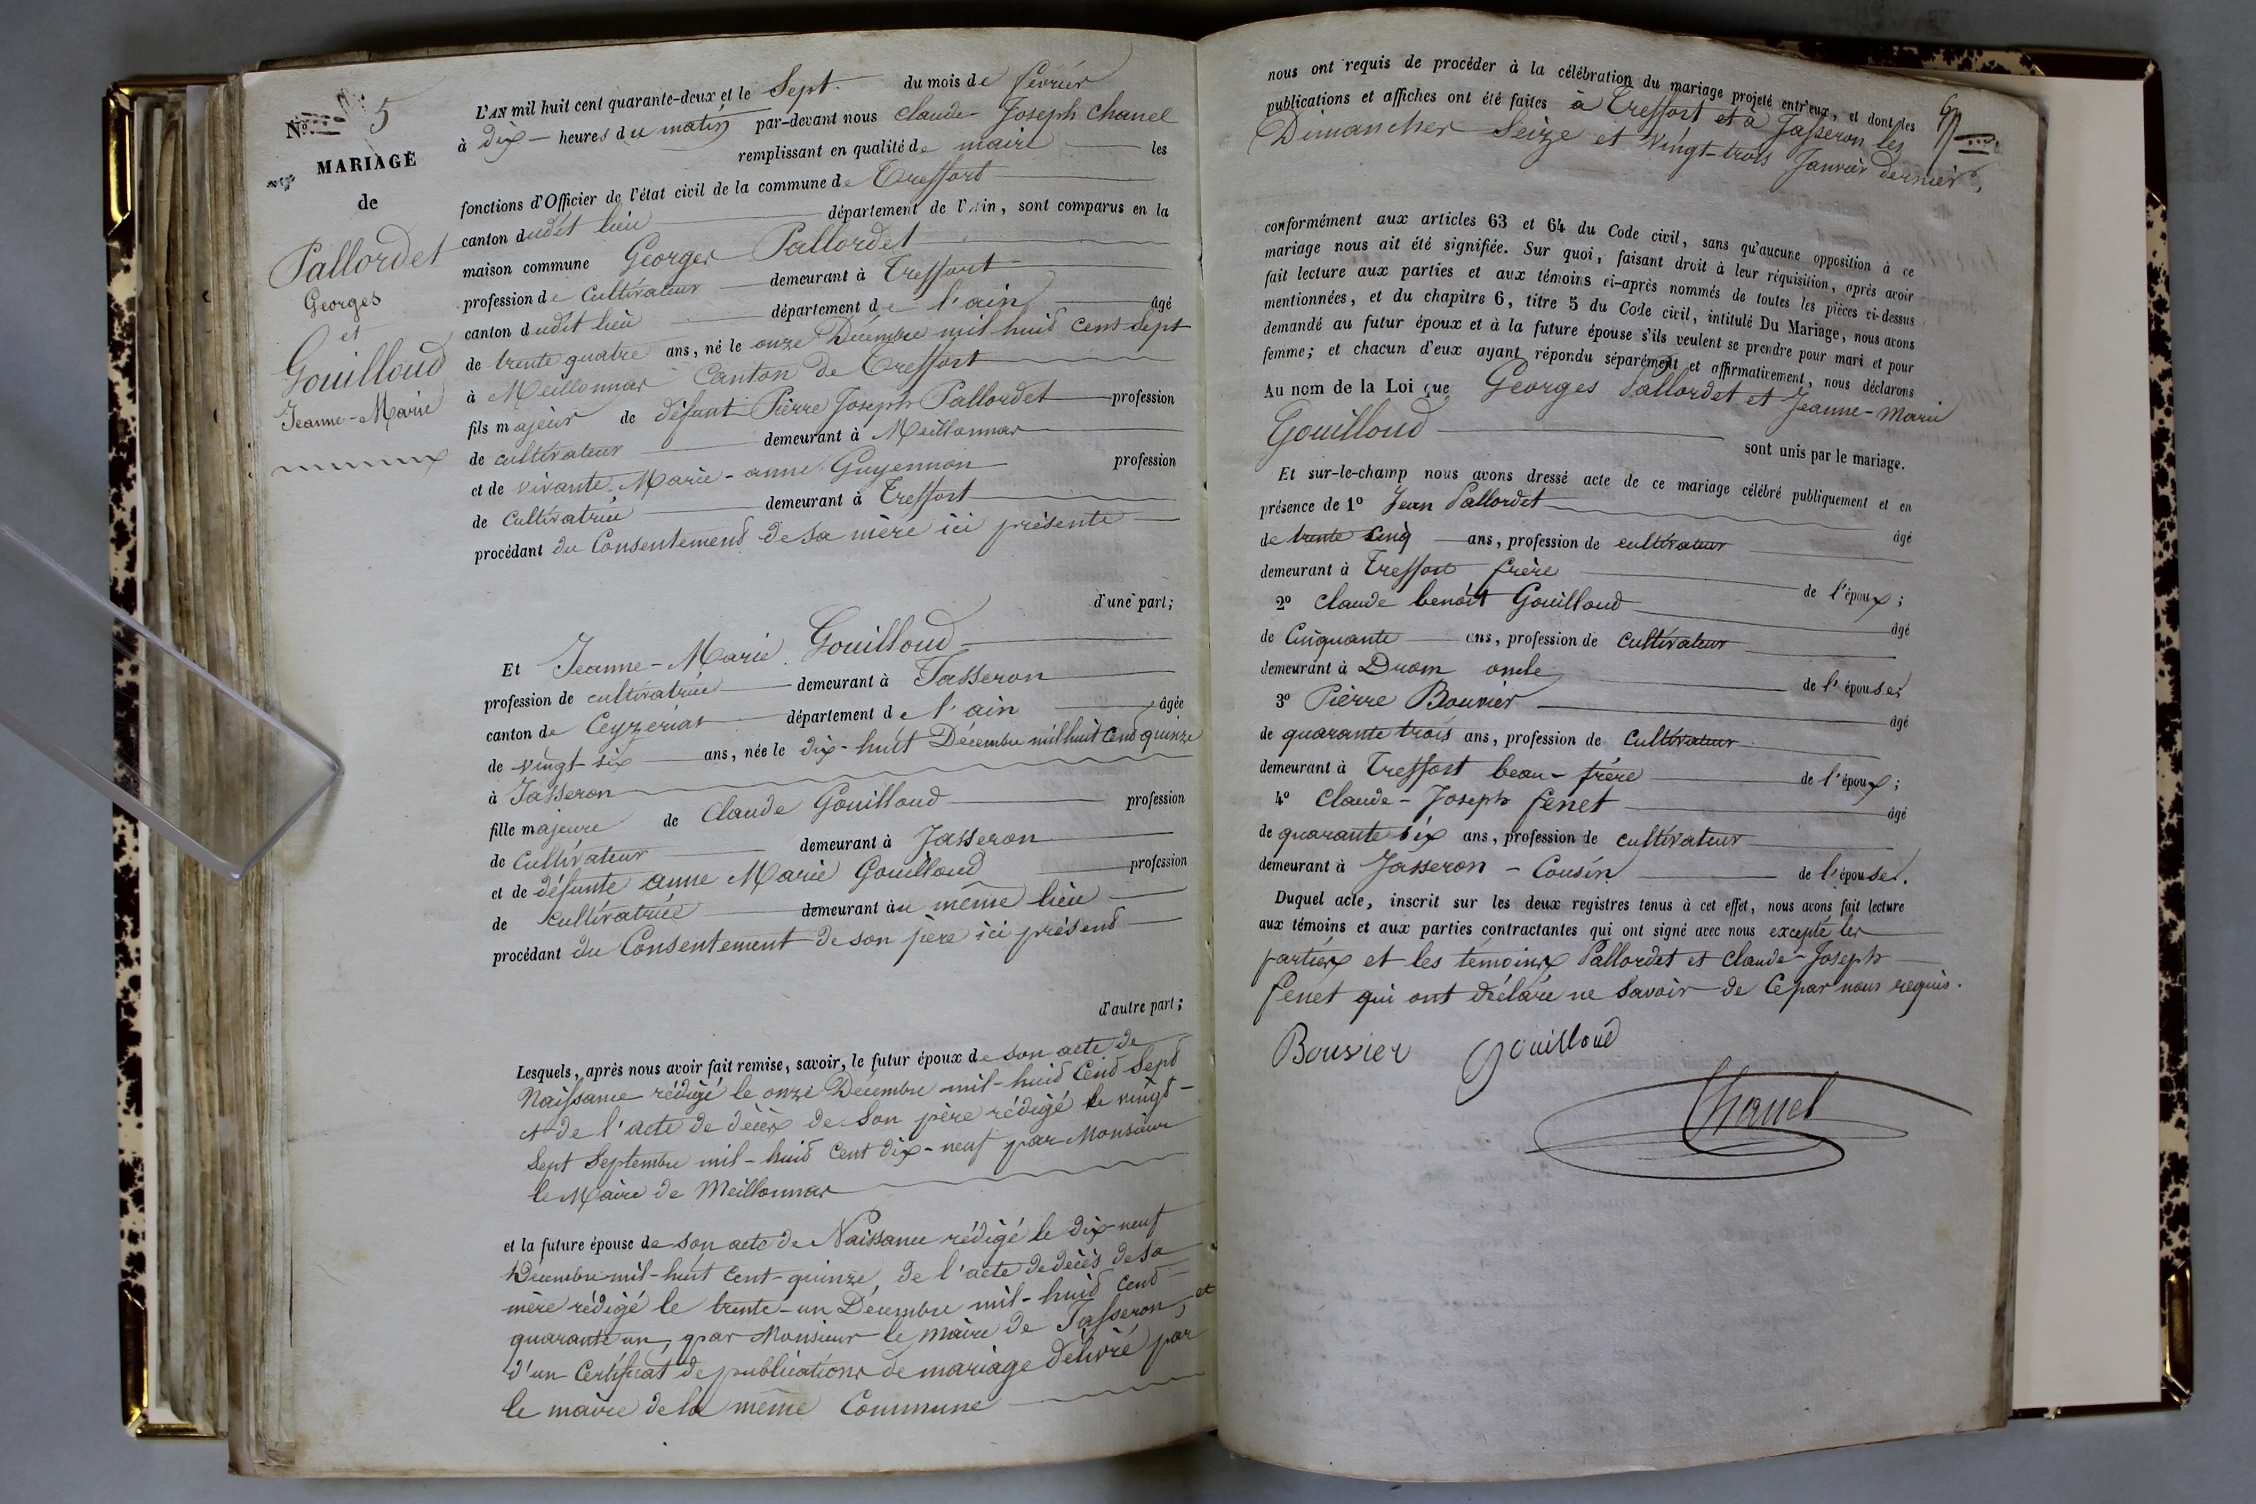 N.º 5
MARIAGE
de
Pallordet
Georges
et
Gouilloud
Jeanne-Marie
L'AN mil huit cent quarante-deux et le Sept du mois de février
à dix heures du matin par-devant nous Claude-Joseph Chanel
remplissant en qualité de maire les
fonctions d'Officier de l'état civil de la commune de Treffort
canton dudit lieu département de l'Ain, sont comparus en la
maison commune Georges Pallordet
profession de cultivateur demeurant à Treffort
canton dudit lieu département de l'ain âgé
de trente quatre ans, né le onze Décembre mil huid cent sept
à Meillonnas Canton de Treffort
fils majeur de défunt Pierre Joseph Pallordet profession
de cultivateur demeurant à Meillonnas
et de vivante Marie-anne Guyennon profession
de cultivatrice demeurant à Treffort
procédant du Consentement de sa mère ici présente
d'une part;
Et Jeanne-Marie Gouilloud
profession de cultivatrice demeurant à Jasseron
canton de Ceyzeriat département de l'ain âgée
de vingt-six ans, née le dix-huit Décembre mil huit cent quinze
à Jasseron
fille majeure de Claude Gouilloud profession
de Cultivateur demeurant à Jasseron
et de défunte anne Marie Gouilloud profession
de cultivatrice demeurant au même lieu
procédant du Consentement de son père ici présend
d'autre part;
Lesquels, après nous avoir fait remise, savoir, le futur époux de son acte de
Naissance rédigé le onze Décembre mil-huid Cend Sept
et de l'acte de décès de Son père rédigé le vingt-
Sept Septembre mil-huid Cent dix-neuf par Monsieur
le Maire de Meillonnas
et la future épouse de son acte de Naissance rédigé le dix-neuf
Décembre mil-huit Cent-quinze, de l'acte de décès de sa
mère rédigé le trente-un Décembre mil-huid cend
quarante un, par Monsieur le Maire de Jasseron, et
d'un Certificat de publications de mariage délivré par
le maire de la même Commune
nous ont requis de procéder à la célébration du mariage projeté entr'eux, et dont les
publications et affiches ont été faites à Treffort et à Jasseron les
Dimanches Seize et vingt-trois Janvier dernier,
conformément aux articles 63 et 64 du Code civil, sans qu'aucune opposition à ce
mariage nous ait été signifiée. Sur quoi, faisant droit à leur réquisition, après avoir
fait lecture aux parties et aux témoins ci-après nommés de toutes les pièces ci-dessus
mentionnées, et du chapitre 6, titre 5 du Code civil, intitulé Du Mariage, nous avons
demandé au futur époux et à la future épouse s'ils veulent se prendre pour mari et pour
femme; et chacun d'eux ayant répondu séparément et affirmativement, nous déclarons
Au nom de la Loi que Georges Pallordet et Jeanne-Marie
Gouilloud sont unis par le mariage.
Et sur-le-champ nous avons dressé acte de ce mariage célébré publiquement et en
présence de 1º Jean Pallordet âgé
de trente Cinq ans, profession de cultivateur
demeurant à Treffort frère de l'époux;
2º Claude benoit Gouilloud âgé
de Cinquante ans, profession de cultivateur
demeurant à Drom oncle de l'épouse;
3º Pierre Bouvier âgé
de quarante trois ans, profession de Cultivateur
demeurant à Treffort beau-frère de l'époux;
4º Claude-Joseph fenet âgé
de quarante six ans, profession de cultivateur
demeurant à Jasseron - Cousin de l'épouse.
Duquel acte, inscrit sur les deux registres tenus à cet effet, nous avons fait lecture
aux témoins et aux parties contractantes qui ont signé avec nous excepté les
parties et les témoins Pallordet et Claude-Joseph
fenet qui ont déclaré ne Savoir de Ce par nous requis.
Bouvier Gouilloud
Chanel